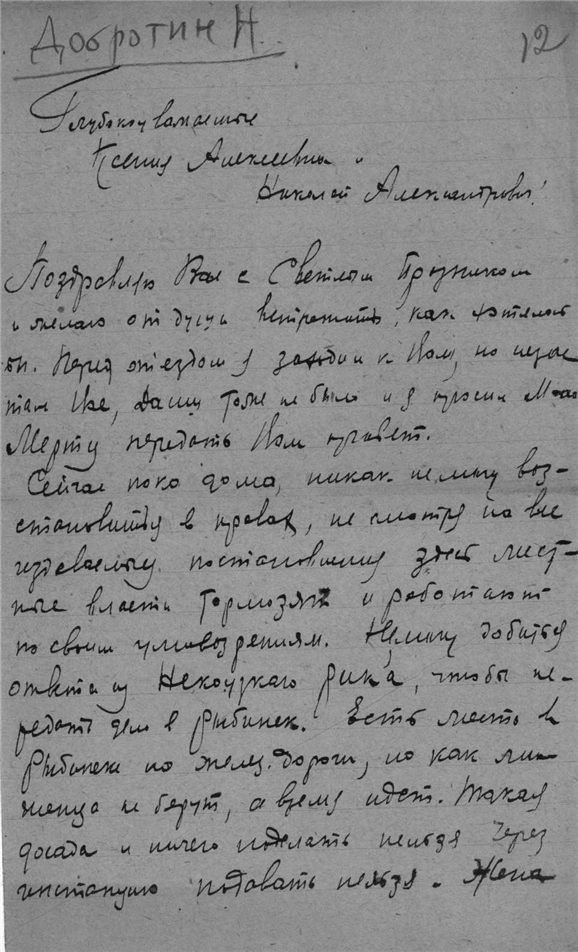 Добротин Н.
12
Глубокоуважаемые
Ксения Алексеевна и
Николай Александрович!
Поздравляю Вас с Светлым Праздником
и желаю от души встретить, как хотелось
бы. Перед отездом я заходил к Вам, но не зас
тал Вас, Даши тоже не было и я просил
Мерту передать Вам привет.
Сейчас пока дома, никак не могу воз-
становиться в правах, не смотря на все
издаваемые постановления здесь мест-
ные власти тормозят и работают
по своим умовозрениям. Не могу добиться
ответа из Некоузкаго Рик'а, чтобы пе-
редать дело в Рыбинск. Есть место в
Рыбинске по желез. дороги, но как ли-
шенца не берут, а время идет. Такая
досада и ничего поделать нельзя через
инстанцию подавать нельзя. Жена